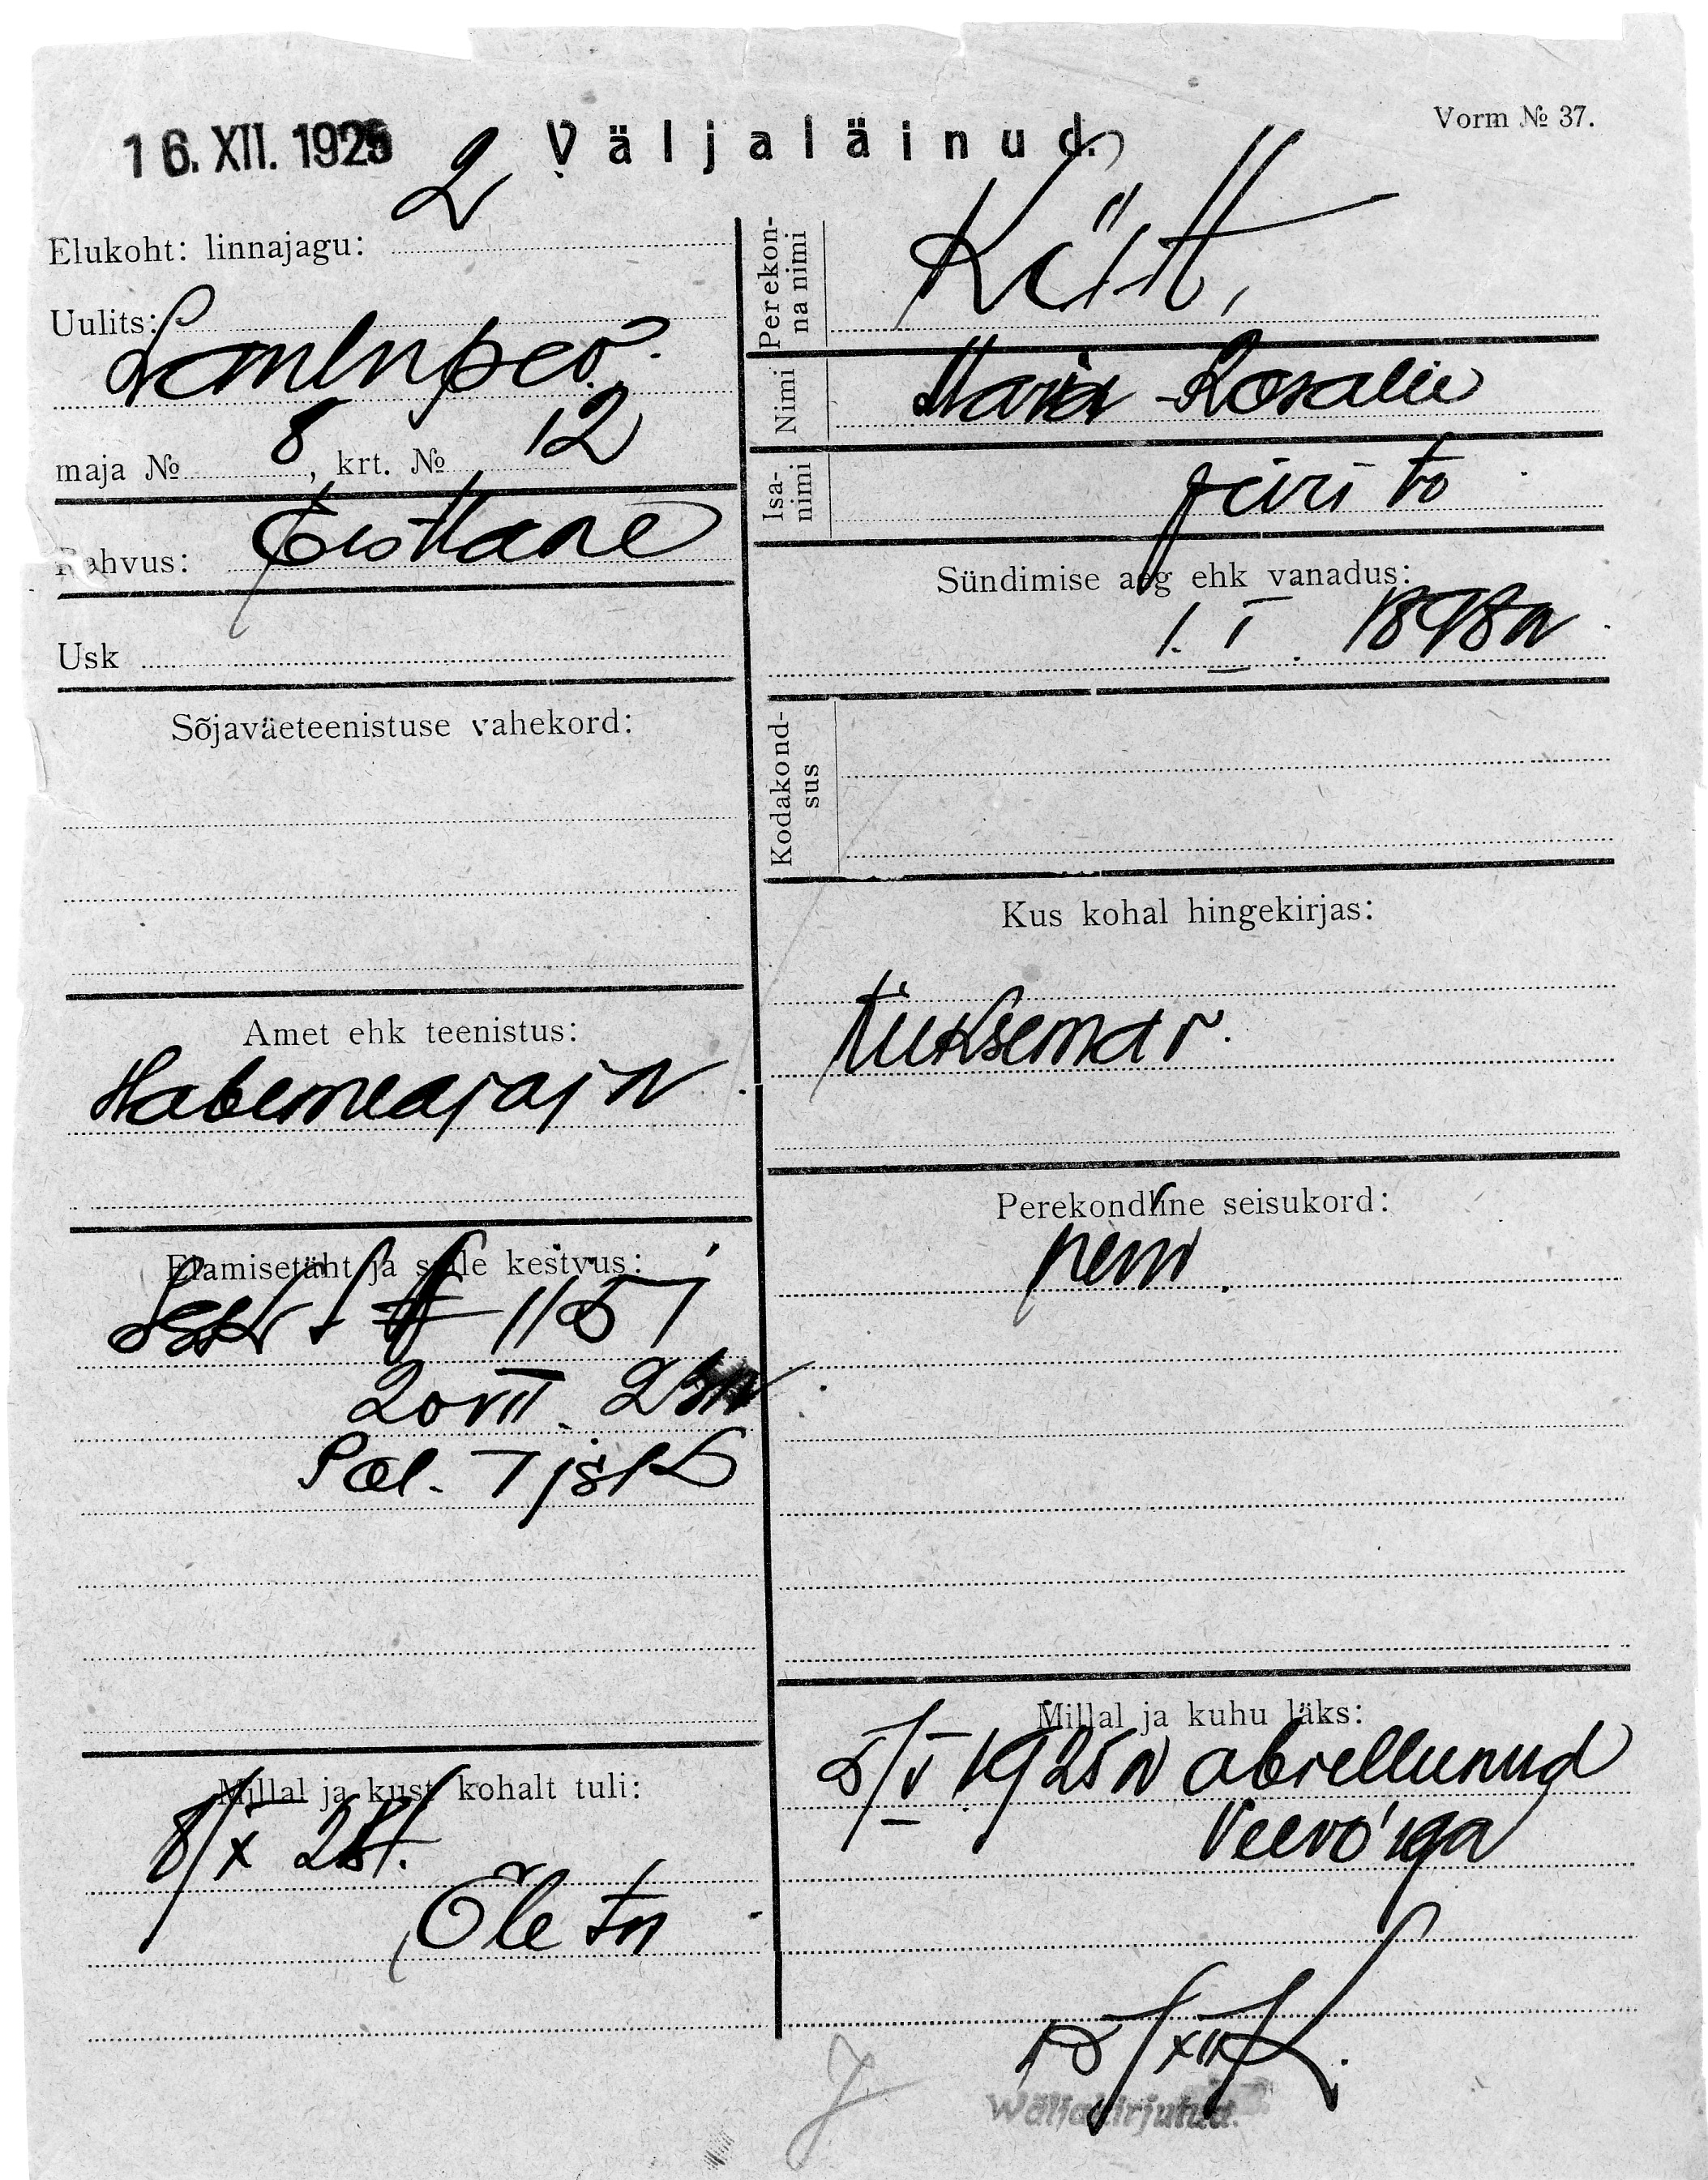 16. XII. 1925
Väljaläinud.
Vorm № 37.
Elukoht: linnajagu: 2
Uulits:
maja № 8, krt. № 12
Rahvus: Eestlane
Usk
Sõjaväeteenistuse vahekord:
Amet ehk teenistus:
Habemeajaja
Elamisetäht ja selle kestvus:
1151
20 VII
Pol. 7 jsk
Millal ja kust kohalt tuli:
8/X
Perekonna nimi Kütt,
Nimi Maria Rosalie
Isanimi Jüri to
Sündimise aeg ehk vanadus:
1. I. 1898a
Kodakondsus
Kus kohal hingekirjas:
Perekondline seisukord:
Millal ja kuhu läks:
5/V 1925 a abiellunud
15/XII
Wäljakirjutud.